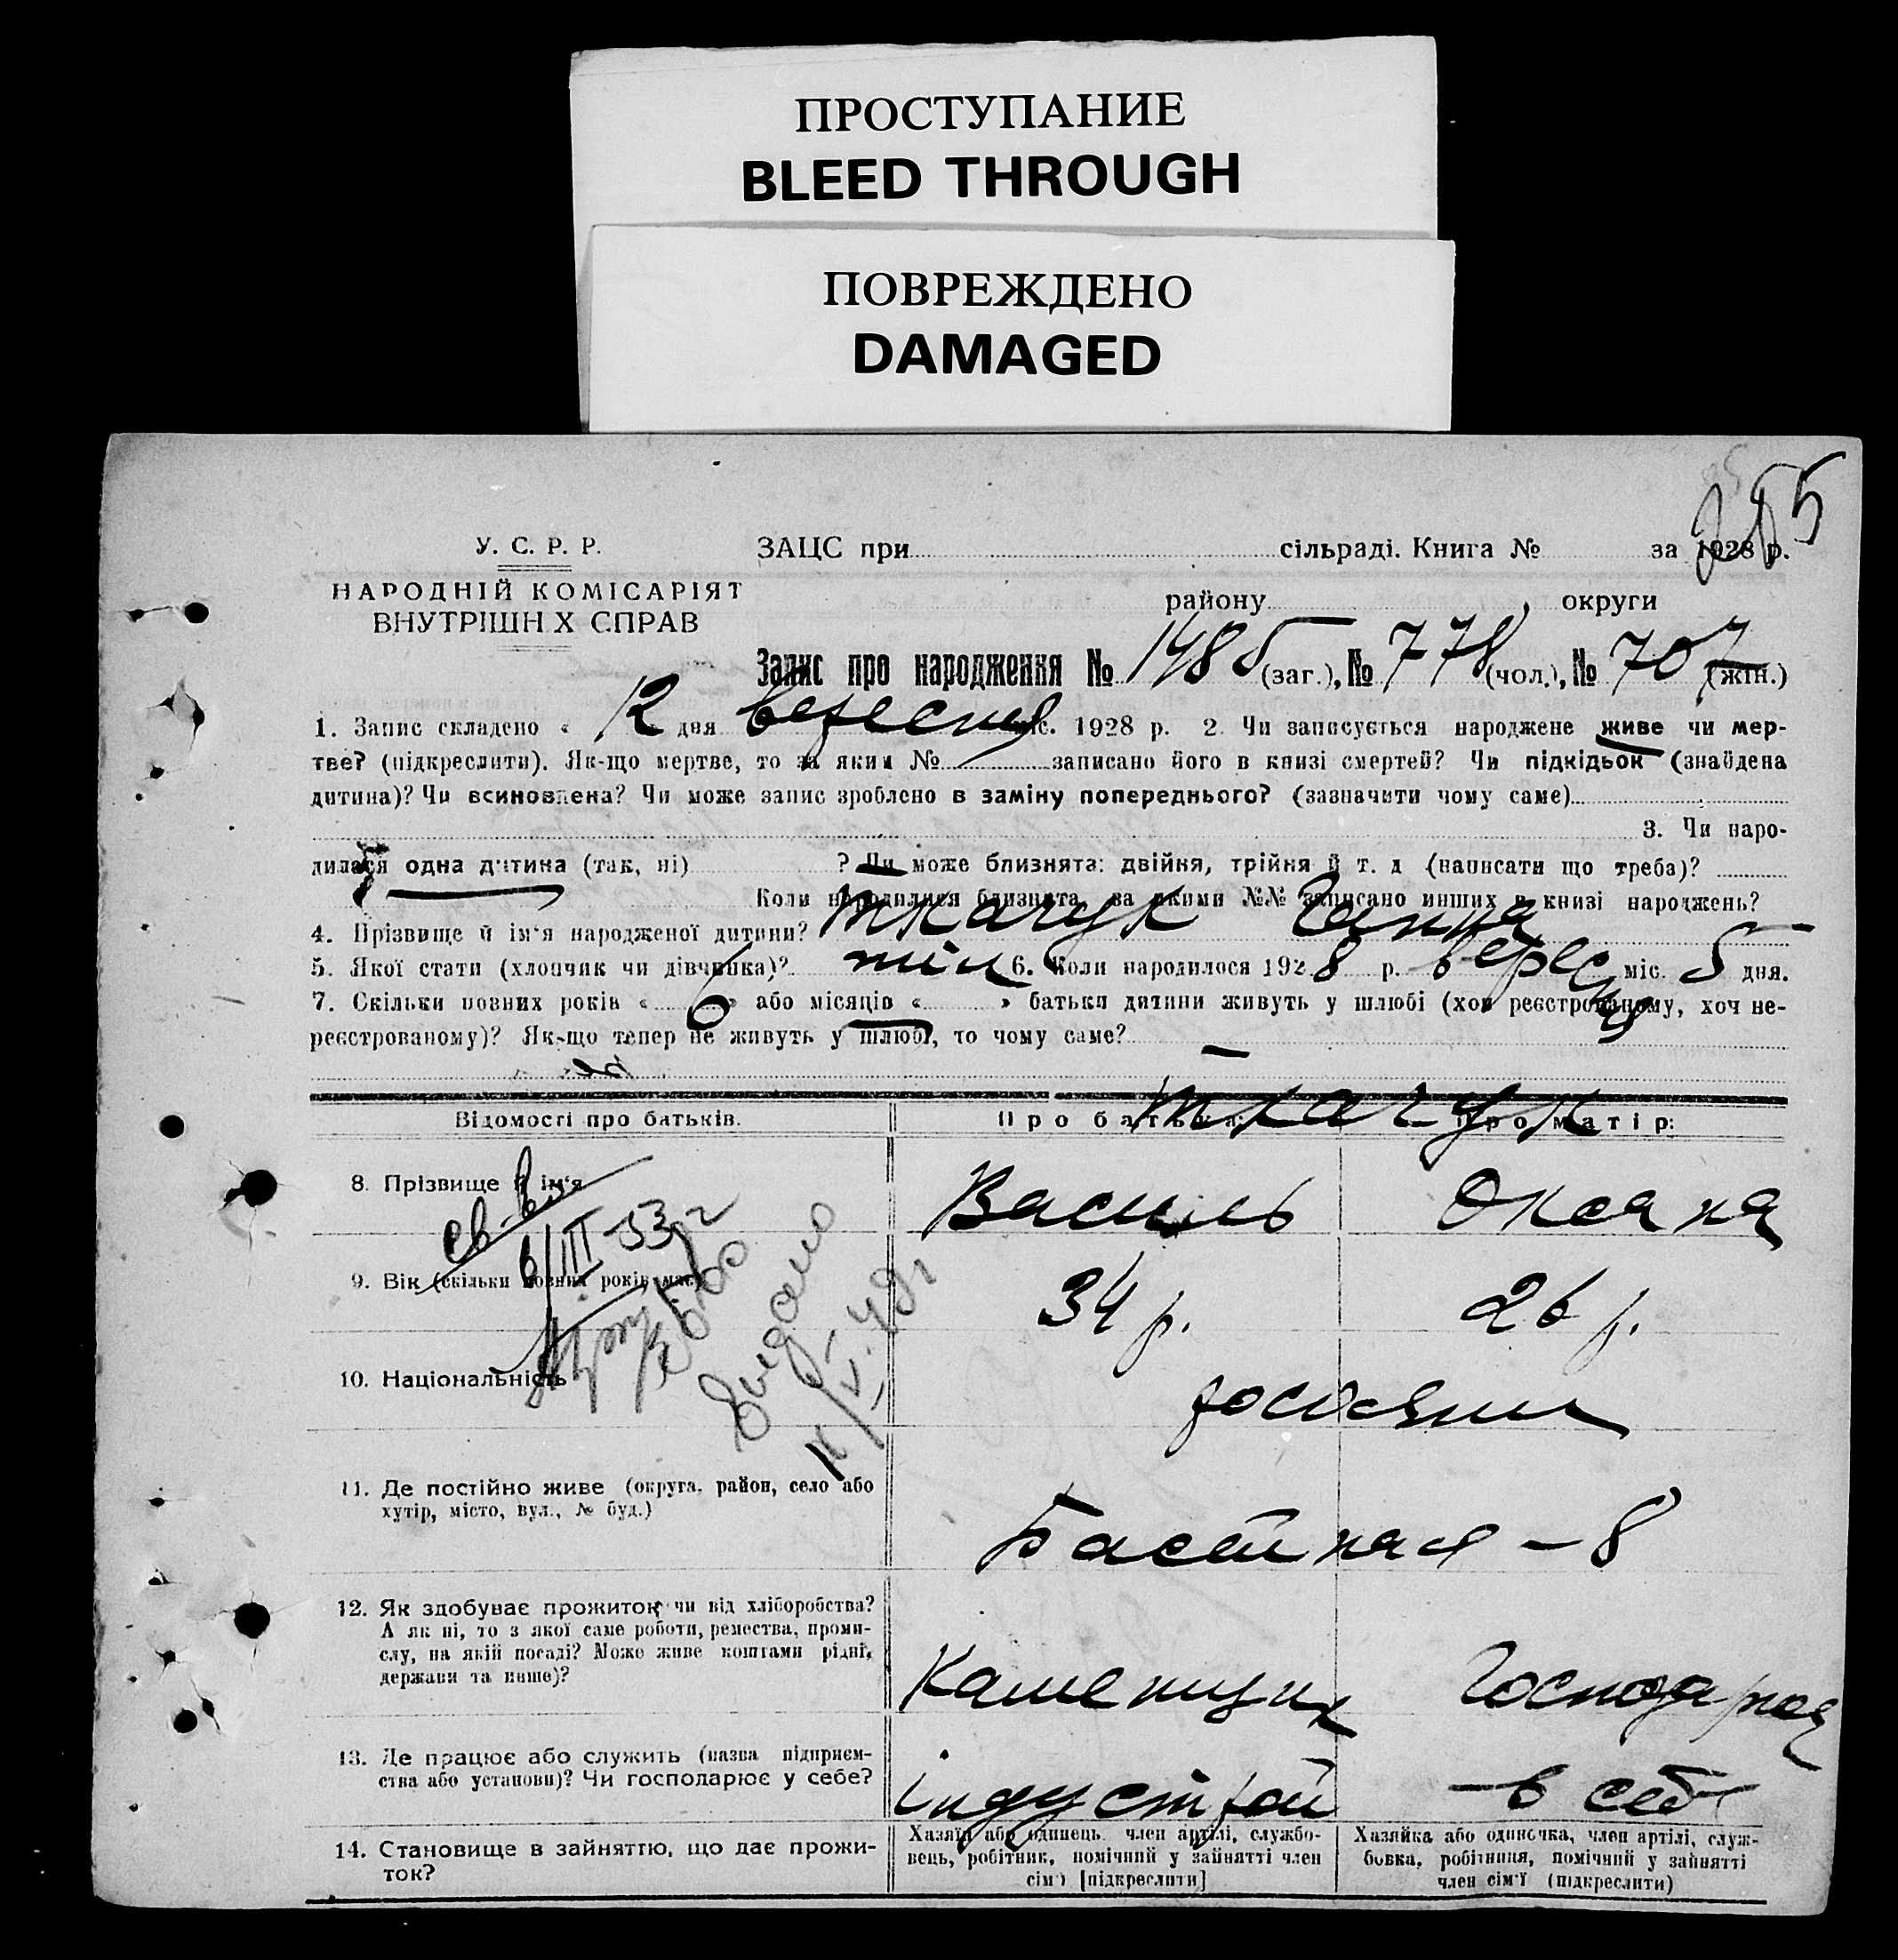 ПРОСТУПАНИЕ
BLEED THROUGH
ПОВРЕЖДЕНО
DAMAGED
У. С. Р. Р.
НАРОДНІЙ КОМІСАРІЯТ
ВНУТРІШН Х СПРАВ
ЗАЦС при сільраді. Книга № за 1928 р.
району, округи
Запис про народження № 1485 (заг.), № 778 (чол.), № 707 (жін.)
1. Запис складено « 12 дня вересня міс. 1928 р. 2. Чи записується народжене живе чи мер-
тве? (підкреслити). Як-що мертве, то за яким № записано його в книзі смертей? Чи підкідьок (знайдена
дитина)? Чи всиновлена? Чи може запис зроблено в заміну попереднього? (зазначити чому саме)
3. Чи наро-
дилася одна дитина (так, ні) ? Чи може близнята: двійня, трійня й т. д (написати що треба)?
Коли народилися близнята, за якими №№ записано инших в книзі народжень?
4. Прізвище й ім'я народженої дитини? Ткачук Ганна
5. Якої стати (хлопчик чи дівчинка)? жін 6. Коли народилося 1928 р. вересня міс. 5 дня.
7. Скільки повних років « 6 » або місяців « » батьки дитини живуть у шлюбі (хоч реєстрованому, хоч не-
реєстрованому)? Як-що тепер не живуть у шлюбі, то чому саме? —
Ткачук
Відомості про батьків. Про батька: Про матір:
8. Прізвище й ім'я Василь Оксана
св-во
6/III-53 г
9. Вік (скільки повних років має) 34 р. 26 р.
Видано
10. Національність
11. Де постійно живе (округа, район, село або
хутір, місто, вул., № буд.)
– 8
12. Як здобуває прожиток чи від хліборобства?
А як ні, то з якої саме роботи, ремества, проми-
слу, на якій посаді? Може живе коштами рідні,
держави та инше)?
Каменщик
13. Де працює або служить (назва підприєм-
ства або установи)? Чи господарює у себе?
Індустрой в себе
14. Становище в зайняттю, що дає прожи-
ток?
Хазяїн або одинець, член артілі, службо-
вець, робітник, помічний у зайнятті член
сім'ї [підкреслити]
Хазяйка або одиночка, член артілі, служ-
бовка, робітниця, помічний у зайнятті
член сім'ї (підкреслити)